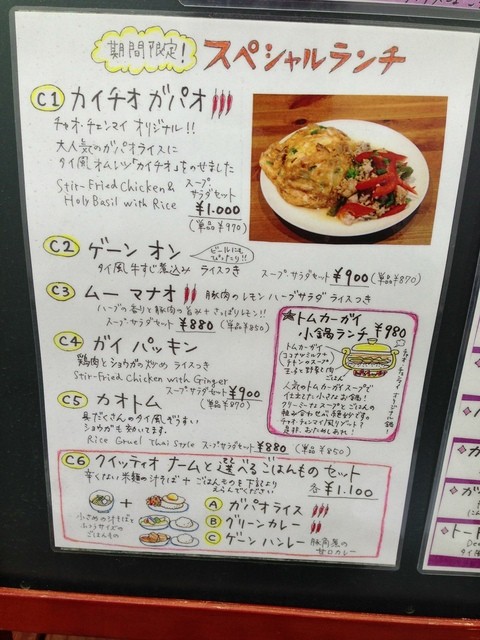 期間限定!
スペシャルランチ
C1 カイチオ ガパオ
チャオ・チェンマイ オリジナル!!
大人気のガパオライスに
タイ風オムレツ「カイチオ」をのせました
Stir-Fried Chicken &
Holy Basil with Rice
スープ
サラダセット
¥1.000
(単品¥970)
C2 ゲーン オン
ビールにも
ぴったり!!
タイ風牛すじ煮込み ライスつき
スープサラダセット ¥900 (単品¥870)
C3 ムー マナオ 豚肉のレモンハーブサラダ ライスつき
ハーブの香りと豚肉の旨み+さっぱりレモン!!
スープサラダセット ¥880 (単品¥850)
C4 ガイ パッキン
鶏肉とショウガの炒め ライスつき
Stir-Fried Chicken with Ginger
スープサラダセット ¥900
(単品¥870)
C5 カオトム
具だくさんのタイ風ぞうすい
ショウガも効いてます。
Rice Gruel Thai Style スープサラダセット ¥880 (単品¥850)
★トムカーガイ
小鍋ランチ ¥980
トムカーガイ
ココナツミルク+
チキンのスープ
玉子と野菜と肉
ごはん
人気のトムカーガイスープで
仕立てた小さなお鍋!
クリーミーなスープとごはんの
組み合わせが絶妙です。
チャオ・チェンマイ風リゾート?
是非、おためしあれ!
C6 クイッティオ ナームと選べるごはんもの セット
辛くない米麺の汁そば + ごはんものを下記より
えらんでください
各¥1.100
小さめの汁そばと
ふつうサイズの
ごはんもの
A ガパオライス
B グリーンカレー
C ゲーン ハンレー 豚角煮の
甘口カレー